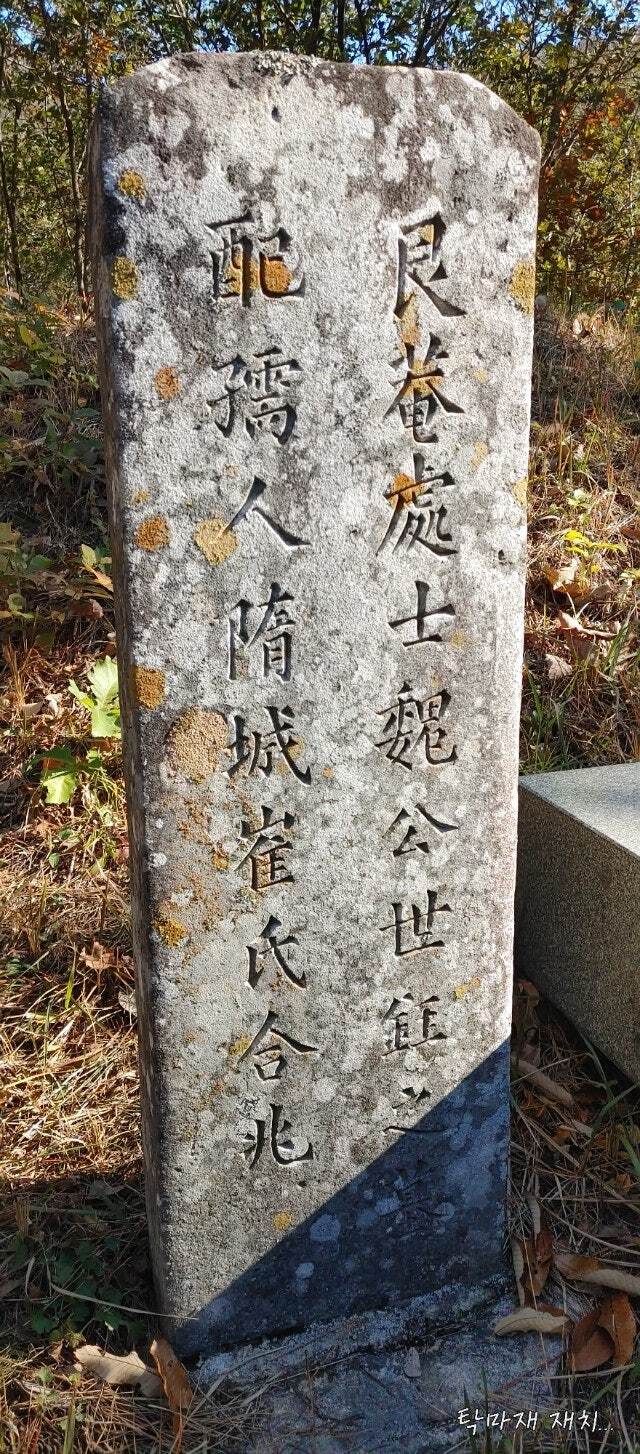 艮菴處士魏公世鈺之墓
配孺人隋城崔氏合兆
탁마재 재치...